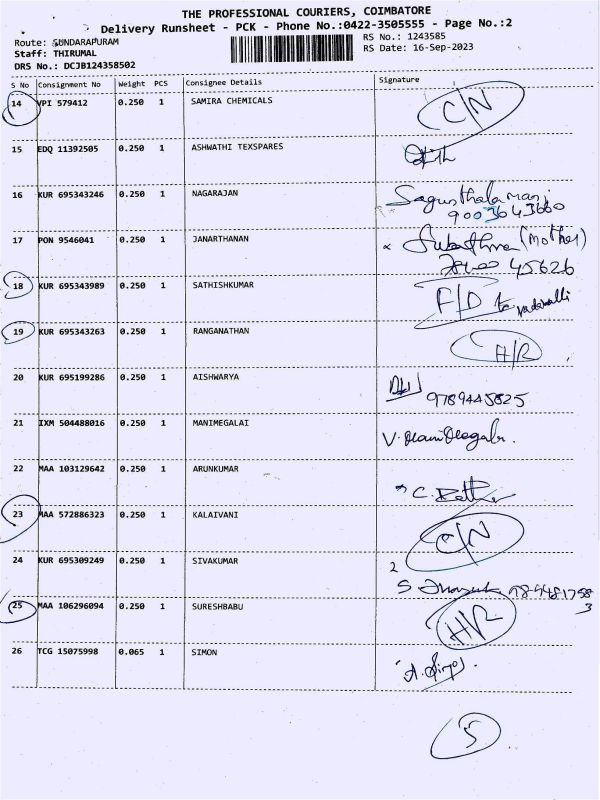 THE PROFESSIONAL COURIERS, COIMBATORE
Delivery Runsheet - PCK - Phone No.:0422-3505555 - Page No.:2
Route: SUNDARAPURAM
RS No.: 1243585
Staff: THIRUMAL
RS Date: 16-Sep-2023
DRS No.: DCJB124358502
S No Consignment No Weight PCS Consignee Details Signature
14 VPI 579412 0.250 1 SAMIRA CHEMICALS C/N
15 EDQ 11392505 0.250 1 ASHWATHI TEXSPARES
16 KUR 695343246 0.250 1 NAGARAJAN
9003643660
17 PON 9546041 0.250 1 JANARTHANAN (Mother)
45626
18 KUR 695343989 0.250 1 SATHISHKUMAR F/D to vadavalli
19 KUR 695343263 0.250 1 RANGANATHAN H/R
20 KUR 695199286 0.250 1 AISHWARYA
9789445825
21 IXM 504488016 0.250 1 MANIMEGALAI
22 MAA 103129642 0.250 1 ARUNKUMAR
23 MAA 572886323 0.250 1 KALAIVANI C/N
24 KUR 695309249 0.250 1 SIVAKUMAR
25 MAA 106296094 0.250 1 SURESHBABU H/R
26 TCG 15075998 0.065 1 SIMON
5